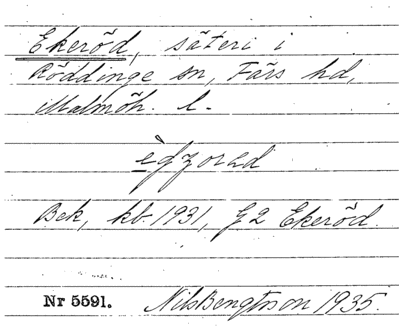 Ekeröd, säteri i
Röddinge sn, Färs hd,
Malmöh. l.
Bek, kb. 1931, G2 Ekeröd.
Nr 5591. Nils Bengtsson 1935.